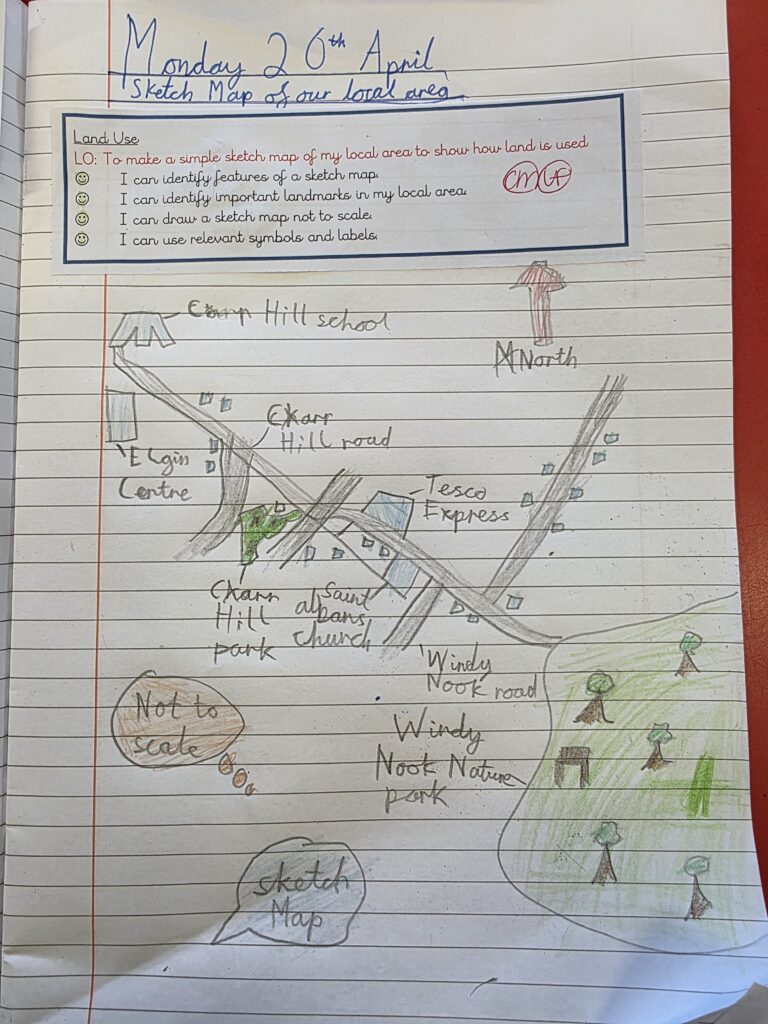 Monday 26th April
Sketch Map of our local area
Land Use
LO: To make a simple sketch map of my local area to show how land is used
I can identify features of a sketch map.
I can identify important landmarks in my local area.
I can draw a sketch map not to scale.
I can use relevant symbols and labels.
Hill school
North
Hill road
Elgin
Centre
Tesco
Express
Hill
park
Saint
albans
church
Windy
Nook road
Not to
scale
Windy
Nook Nature
park
sketch
Map